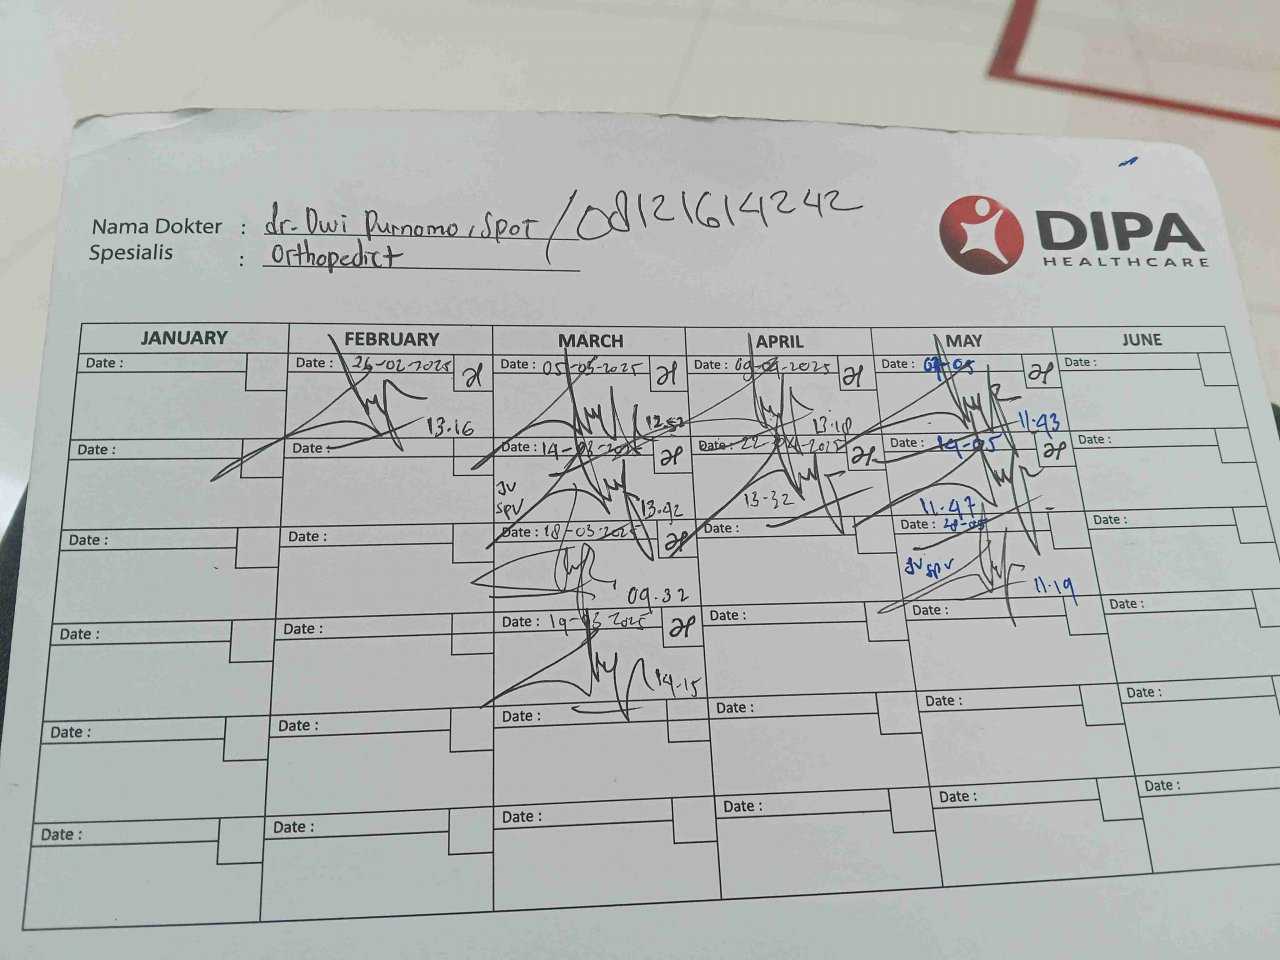 Nama Dokter : dr. Dwi Purnomo, Spot / 08121614242
Spesialis : Orthopedict
DIPA
HEALTHCARE
JANUARY FEBRUARY MARCH APRIL MAY JUNE
Date : Date : 26-02-2025 Date : 05-03-2025 Date : 09-04-2025 Date : 07-05 Date :
13.16 12.52 13.18 11.43
Date : Date : Date : 14-03-2025 Date : 22-04-2025 Date : 14-05 Date :
JV
SPV 13.42 13-32 11.47
Date : Date : Date : 18-03-2025 Date : Date : 28-05 Date :
09.32 JV SPV 11.19
Date : Date : Date : 19-03-2025 Date : Date : Date :
14-15
Date : Date : Date : Date : Date : Date :
Date : Date : Date : Date : Date : Date :